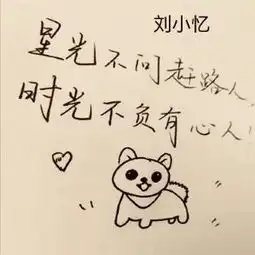 刘小忆
星光不问赶路人,
时光不负有心人